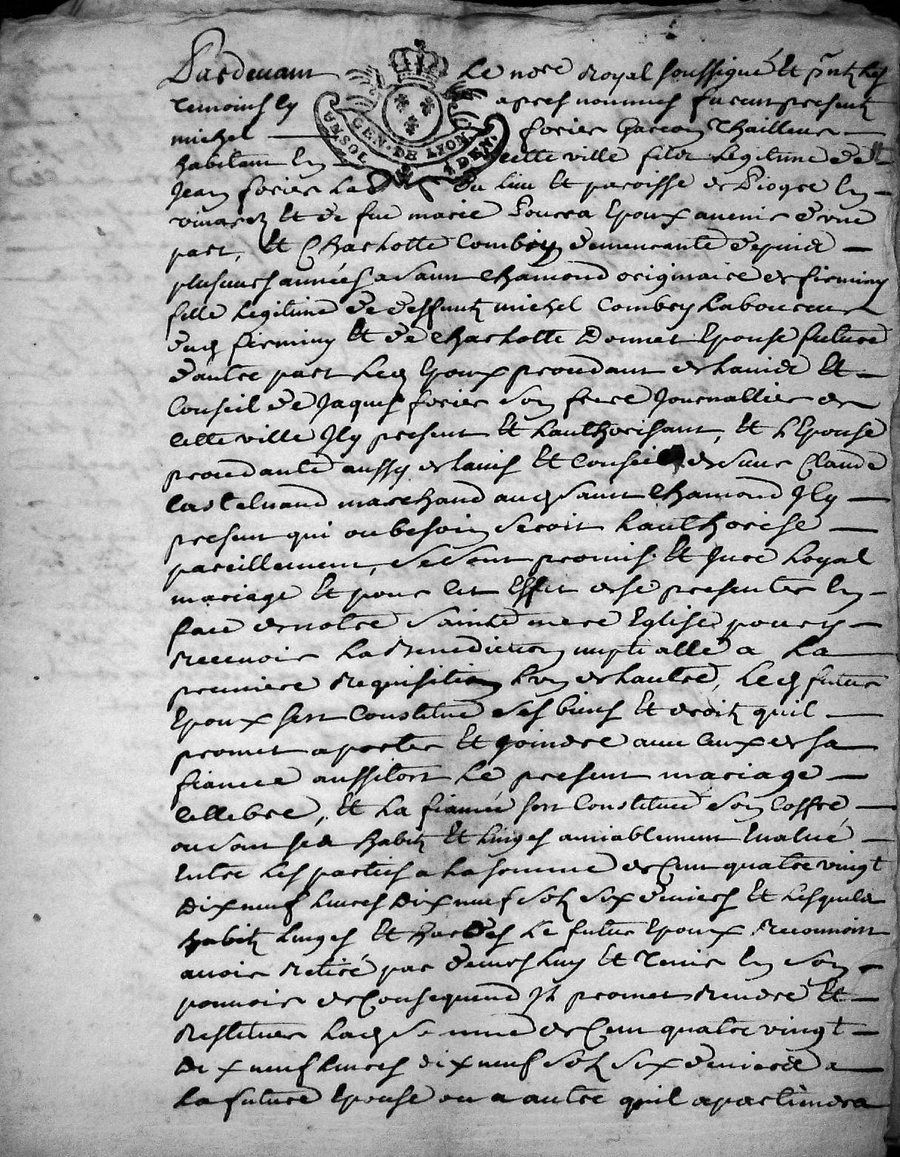 Pardevant Le nore Royal soussigné Et pntz Les
Temoins Cy apres nommes furent presentz
michel forier Garcon Thailleur
UN SOL GEN. DE LYON 4 DEN.
habitant En cette ville filz Legitime de
Jean forier du lieu Et paroisse de En
vivarez Et de fue marie Epoux avenir d'une
part, Et Charlotte Combry demeurante depuis
plusieurs années a saint Chamond originaire de firminy
fille Legitime de deffuntz michel Combry Laboureur
dud firminy Et de Charlotte Donnet Epouse future
d'autre part Led Epoux procedant de Lavis Et
Conseil de Jaques forier son frere Journallier de
cette ville Icy present Et Lauthorisant, Et L'Epouse
procedante aussy de Lavis Et Conseil de sieur Claude
Castelnaud marchand aud saint Chamond Icy
present qui au besoin seroit Lauthorise
pareillement, se sont promis Et Juré Loyal
mariage Et pour cet Effet de se presenter En
face de notre sainte mere Eglise pour y
Recevoir La Benediction nuptialle a La
premiere Requisition L'un de Lautre, Led futur
Epoux sest Constitué ses biens Et droitz quil
promet aporter Et joindre avec ceux de sa
fiancée aussitost Le present mariage
cellebré, Et La fiancée sest Constitué son Coffre
ou sont ses habitz Et Linges amiablement Evalué
Entre Les parties a La somme de Cent quatre vingt
Dix neuf Livres Dix neuf solz six deniers Et Lesquels
habitz Linges Et hardes Le futur Epoux Reconnoit
avoir Retiré par devers Luy Et Tenir En son
pouvoir de Consequend Il promet Rendre Et
Restituer Lad somme de Cent quatre vingt
Dix neuf Livres dix neuf solz six deniers a
La future Epouse ou a autre quil apartiendra